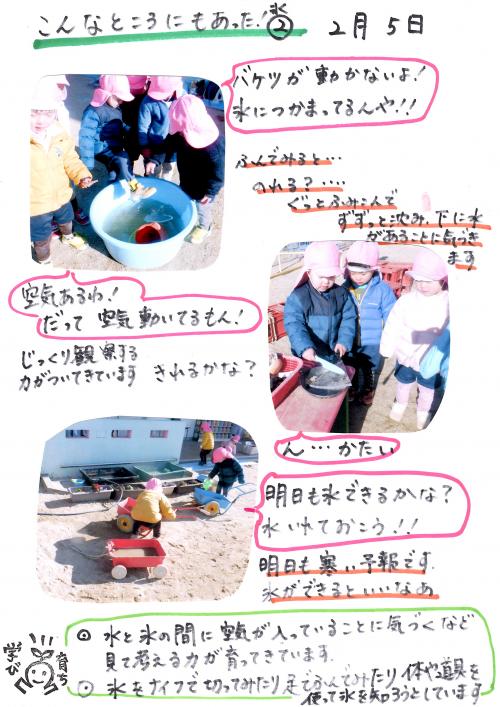 こんなところにもあった！氷② 2月5日
バケツが動かないよ！
氷につかまってるんや！！
ふんでみると…
のれる？‥‥
ぐっとふみこんで
ずずっと沈み、下に水
があることに気づき
ます
空気あるわ！
だって 空気動いてるもん！
じっくり観察する
力がついてきています
きれるかな？
ん…かたい
明日も氷できるかな？
水いれておこう！！
明日も寒い予報です。
氷ができるといいなあ
◎ 水と氷の間に空気が入っていることに気づくなど
見て考える力が育ってきています。
◎ 氷をナイフで切ってみたり足でふんでみたり体や道具を
使って氷を知ろうとしています
学び
育ち